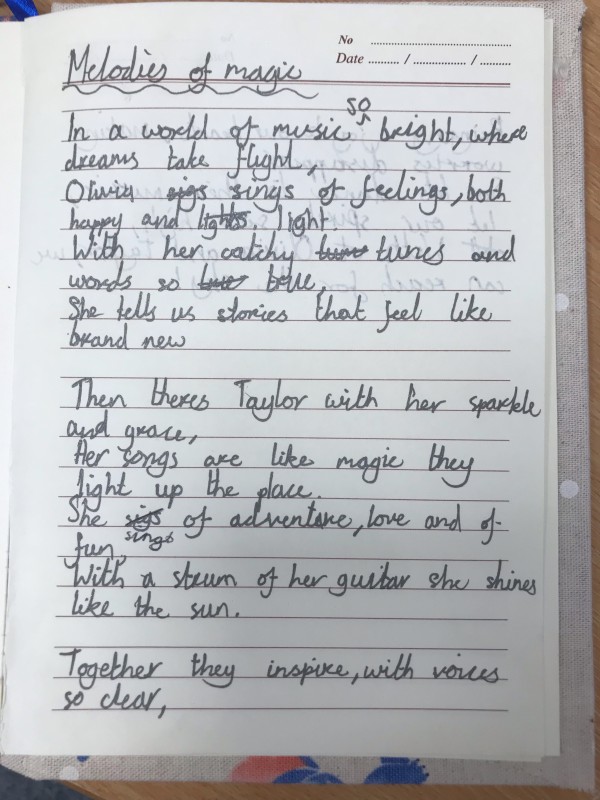 No ..........................................
Date .......... / ................ / ..........
Melodies of magic
so
In a world of music bright, where
dreams take flight,
Olivia sigs sings of feelings, both
happy and lights. light
With her catchy tune tunes and
words so true,
She tells us stories that feel like
brand new
Then theres Taylor with her sparkle
and grace,
Her songs are like magic they
light up the place.
She sigs of adventure, love and of
sings
fun,
With a strum of her guitar she shines
like the sun.
Together they inspire, with voices
so clear,